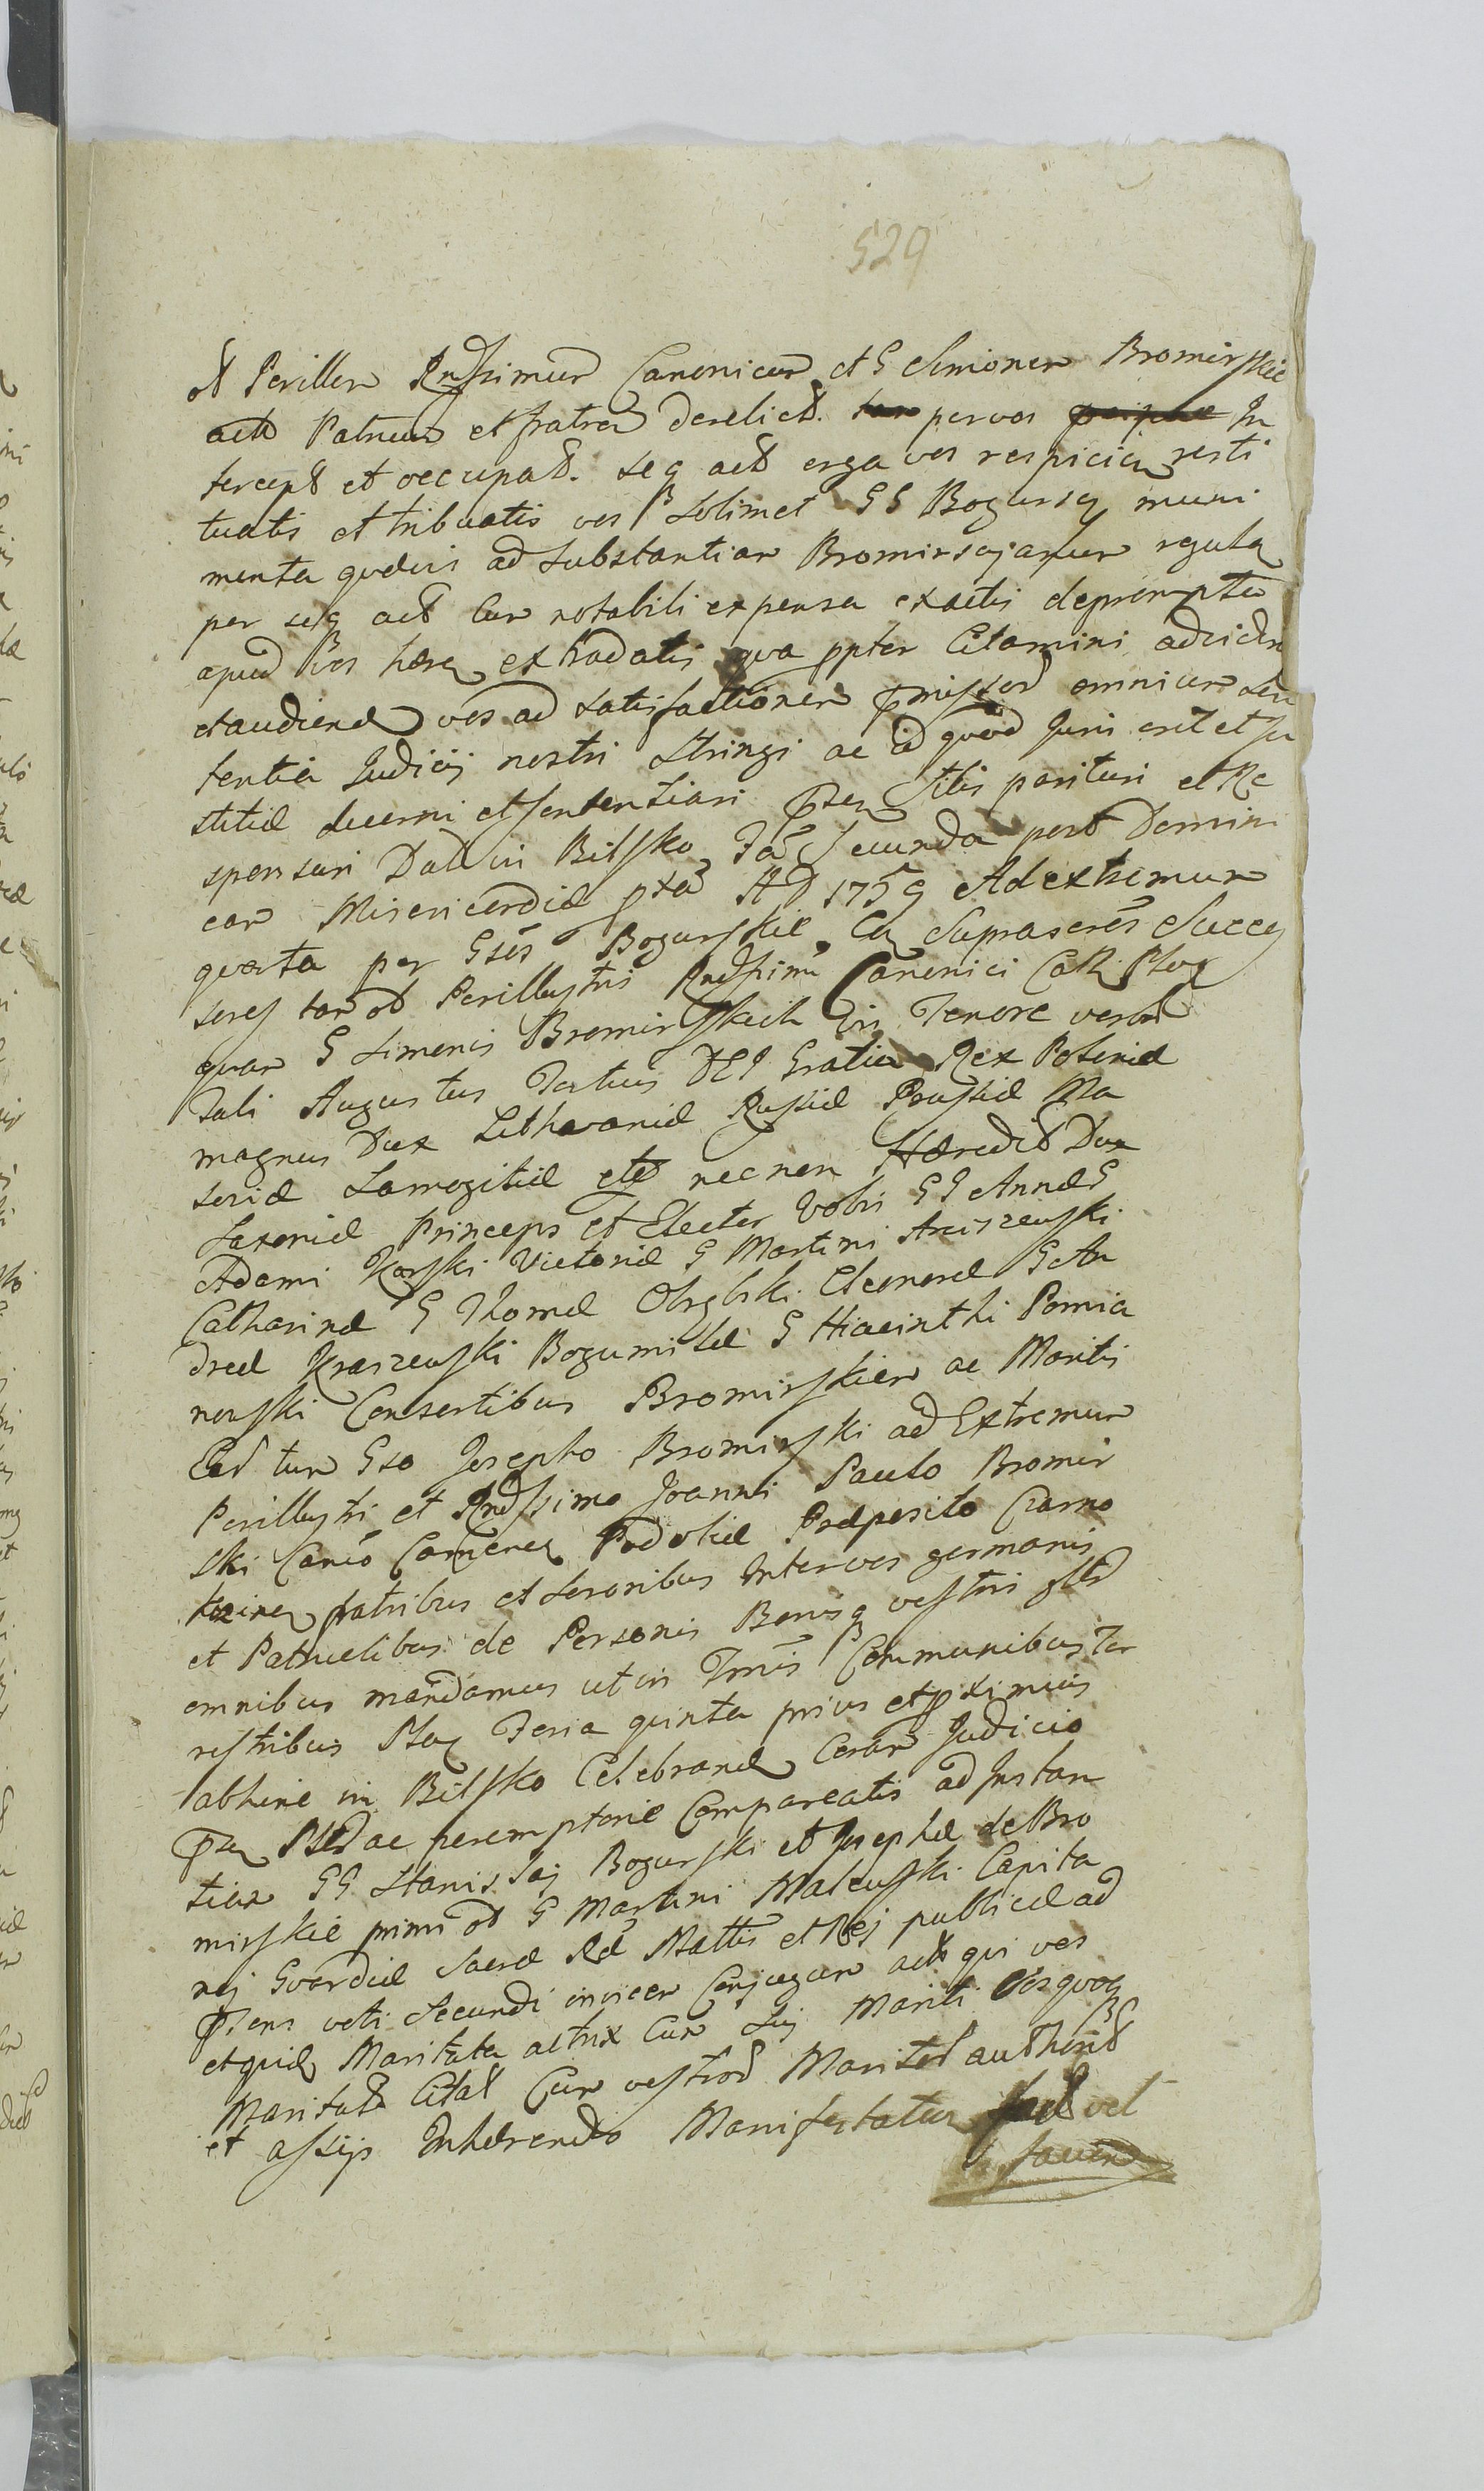 529
et Perillem Rndssimum Canonicum et G Simonem Bromirskie
actt Patruum et fratrem derelict. per vos In
tercept et occupat. seq actt erga vos respicien resti
tuatis et tribuatis vos solimet GG Bogursq muni
menta quaevis ad substantiam Bromirscianam regula
per seq actt Cum notabili expensa exactis deprompta
apud vos haeren extradatis qua ppter Citamini adviden
etaudiend vos ad satisfactionem pmissor omnium Sen
tentia Judicij nostri stringi ac id quod Juri erit et Ju
stitiae decerni et sententiari ptes sitis parituri et Re
sponsuri Dat in Bilsko Fa Secunda post Domini
cam Misericordiae pxa AD 1759 Ad extremum
quarta per Gsos Bogurskie Cu suprascris Succes
sores tam ob Perillustris Rndssimi Canonici Cath Ploc
quam G Simonis Bromirskich in Tenore verbor
Tali Augustus Tertius DEI Gratia Rex Poloniae
magnus Dux Lithvaniae Russiae Prussiae Ma
soviae Samogitiae ette necnon Haeredit Dux
Saxoniae Princeps et Elector Vobis GG Annae G
Adami Karski Victoriae G Martini Arciszewski
Catharinae G Thomae Obrębski Eleonorae G An
dreae Kraszewski Bogumilae G Hiacinthi Pomia
nowski Consortibus Bromirskiem ac Maritis
Ead tum Gso Josepho Bromirski ad Extremum
Perillustri et Rndssimo Joanni Paulo Bromir
ski Canco Camenes Podoliae Praeposito Czarno
fratribus et Sororibus Inter vos germanis
et Patruelibus de Personis Bonisq vestris
omnibus mandamus ut in Tmis Communibus Ter
restribus Ploc Feria quinta prius et pximius
abhinc in Bilsko Celebrand Coram Judicio
ptes ac peremptorie Compareatis ad Instan
tiam GG Stanislaj Bogurski et Josephae de Bro
mirskie primi ob G Martini Malewski Capita
nej Gvardiae Sacrae Rae Mattis et Rej publicae ad
voti Secundi invicem Conjugum actt qui vos
etquid Maritata actrix Cum sui Mariti vosquoq
Maritat Citat Cum vestror Maritor authorit
et assi Inhaerendo Manifestatus vel